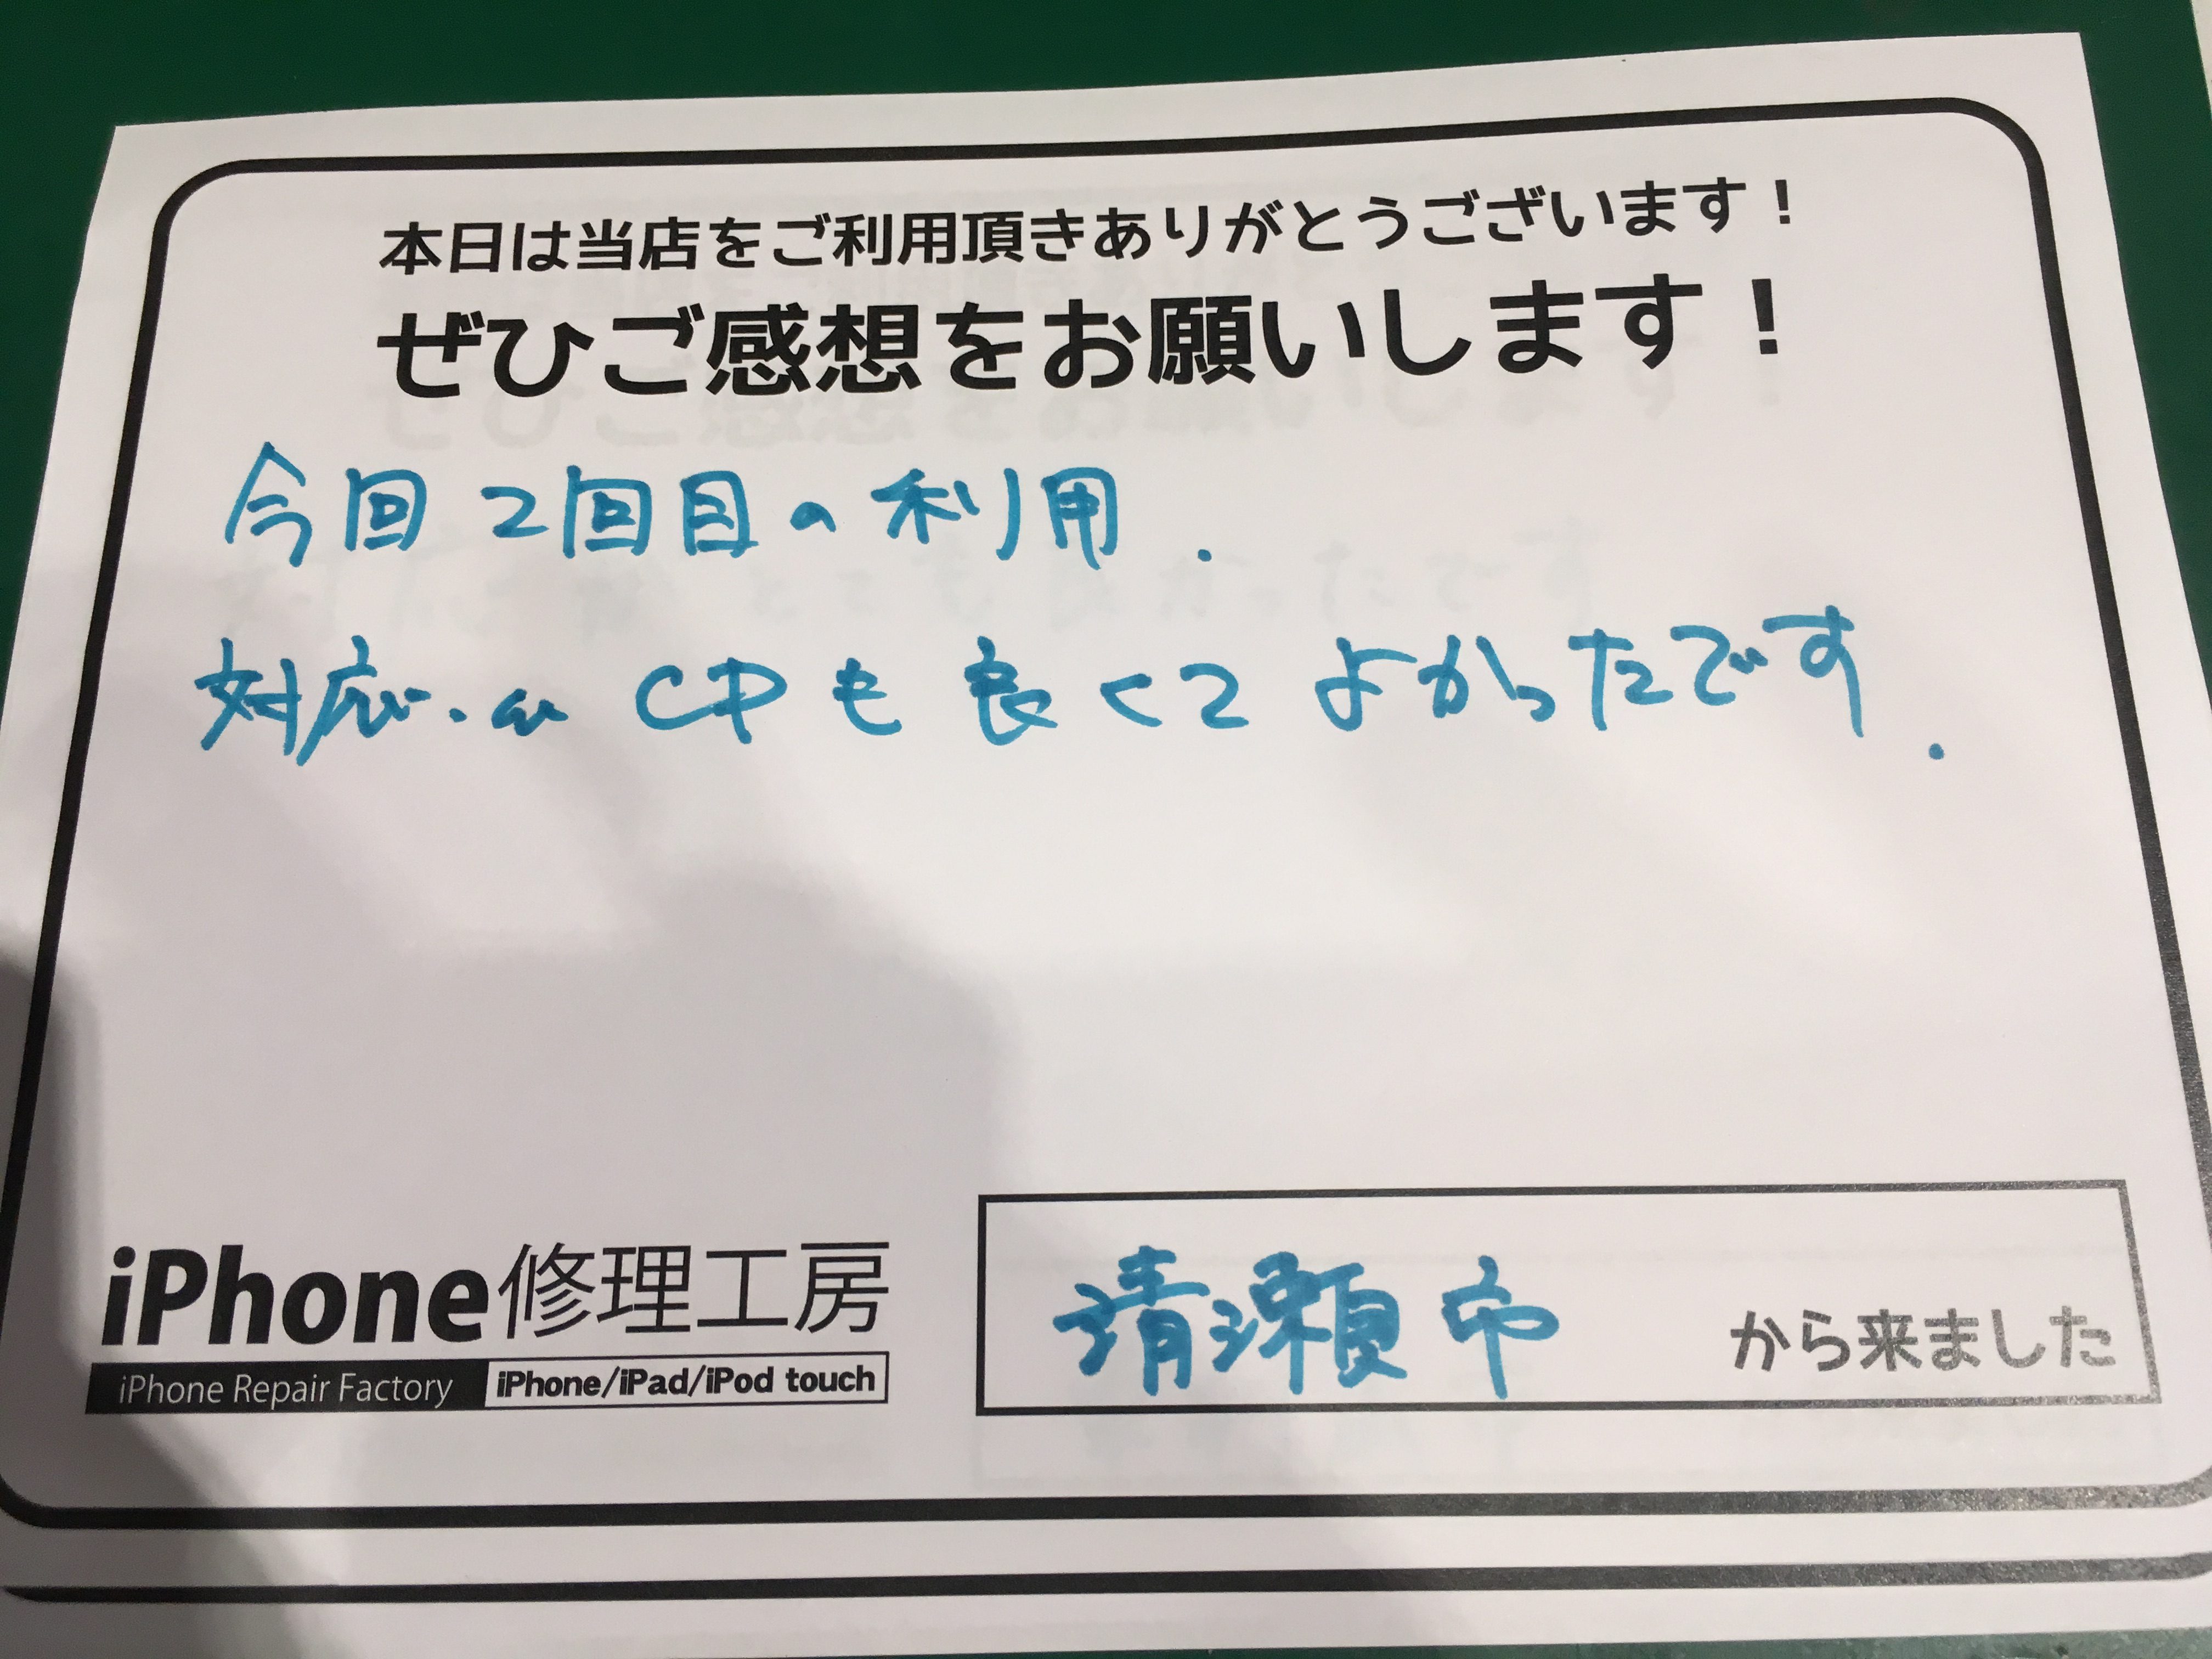 本日は当店をご利用頂きありがとうございます！
ぜひご感想をお願いします！
今回2回目の利用.
対応. CPも良くてよかったです.
iPhone修理工房
iPhone Repair Factory iPhone/iPad/iPod touch
清瀬市 から来ました